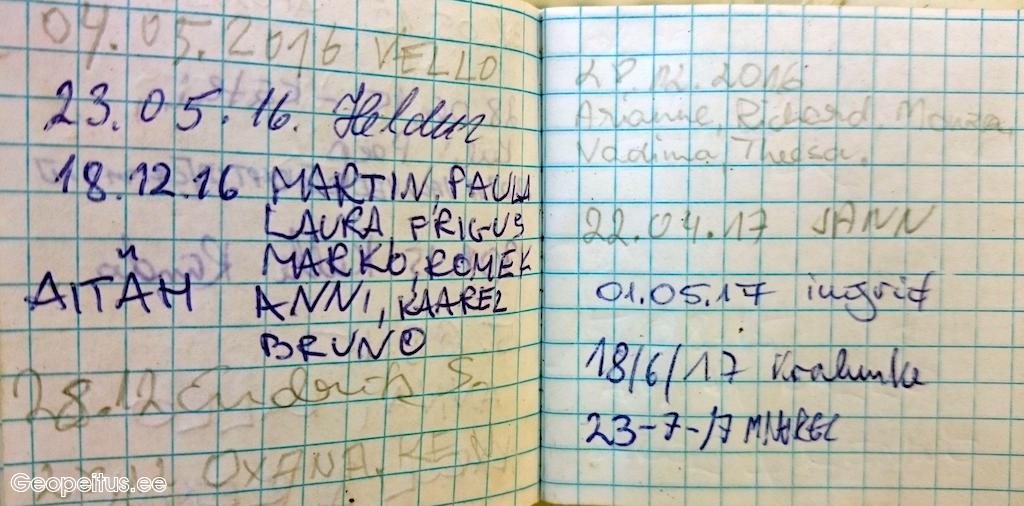 04.05.2016 VELLO
23.05.16. Heldur
18.12.16 MARTIN, PAULA
LAURA, FRIGUS
MARKO, ROMEK
AITÄH ANNI, KAAREL
BRUNO
28.12 Endrik S.
OXANA,
Geopeitus.ee
28.12.2016
Arianne, Richard,
Vadima,
22.04.17 JANN
01.05.17 ingrid
18/6/17
23-7-17